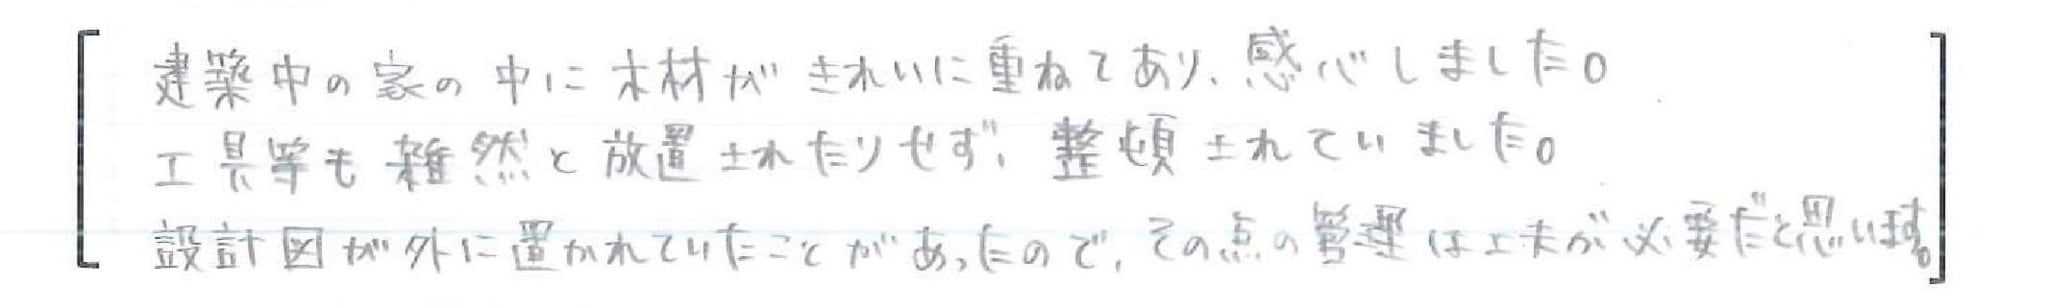 建築中の家の中に木材がきれいに重ねてあり、感心しました。
工具等も雑然と放置されたりせず、整頓されていました。
設計図が外に置かれていたことがあったので、その点の管理は工夫が必要だと思います。